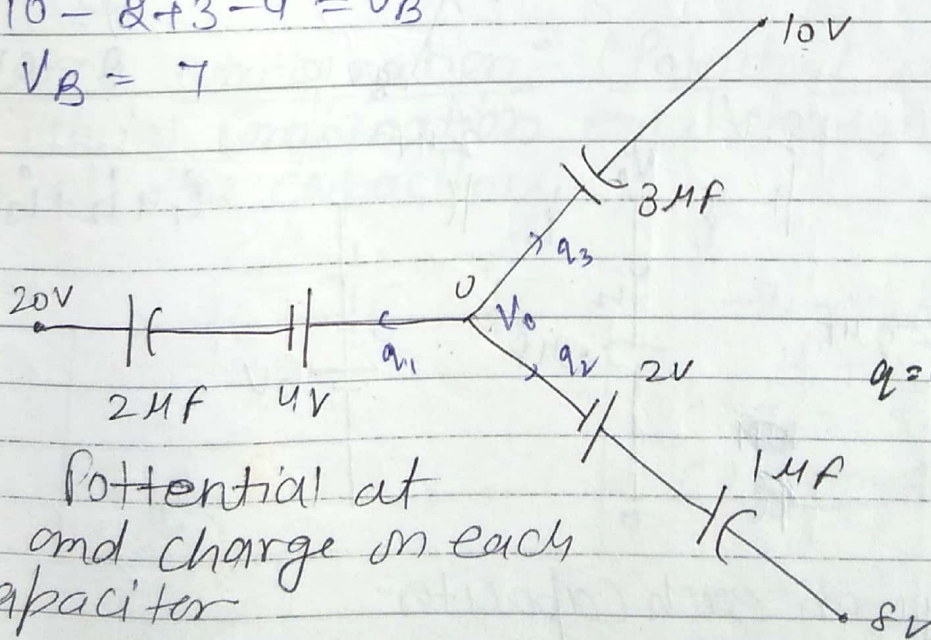 10 - 2+3-4 = VB
VB = 7
10V
3μF
q3
20V
O
V0
q1
q2
2V
q=
2μF
4V
1μF
Pottential at
and charge on each
apacitor
8V